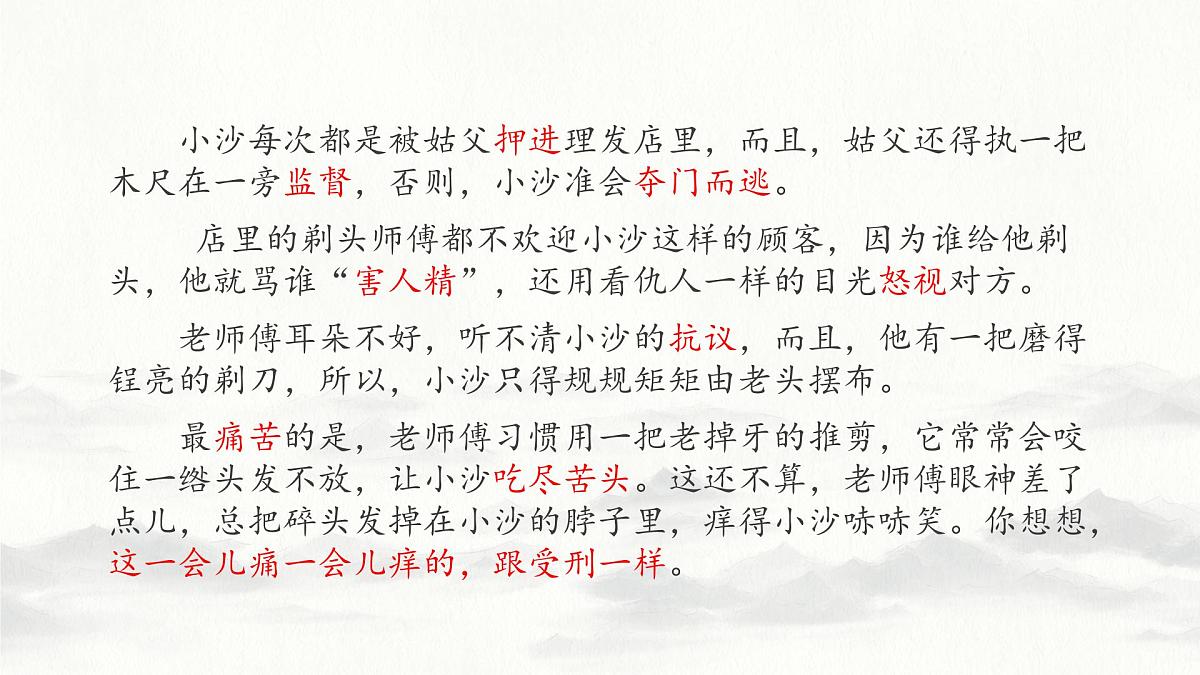 小沙每次都是被姑父押进理发店里，而且，姑父还得执一把
木尺在一旁监督，否则，小沙准会夺门而逃。
店里的剃头师傅都不欢迎小沙这样的顾客，因为谁给他剃
头，他就骂谁“害人精”，还用看仇人一样的目光怒视对方。
老师傅耳朵不好，听不清小沙的抗议，而且，他有一把磨得
锃亮的剃刀，所以，小沙只得规规矩矩由老头摆布。
最痛苦的是，老师傅习惯用一把老掉牙的推剪，它常常会咬
住一绺头发不放，让小沙吃尽苦头。这还不算，老师傅眼神差了
点儿，总把碎头发掉在小沙的脖子里，痒得小沙哧哧笑。你想想，
这一会儿痛一会儿痒的，跟受刑一样。